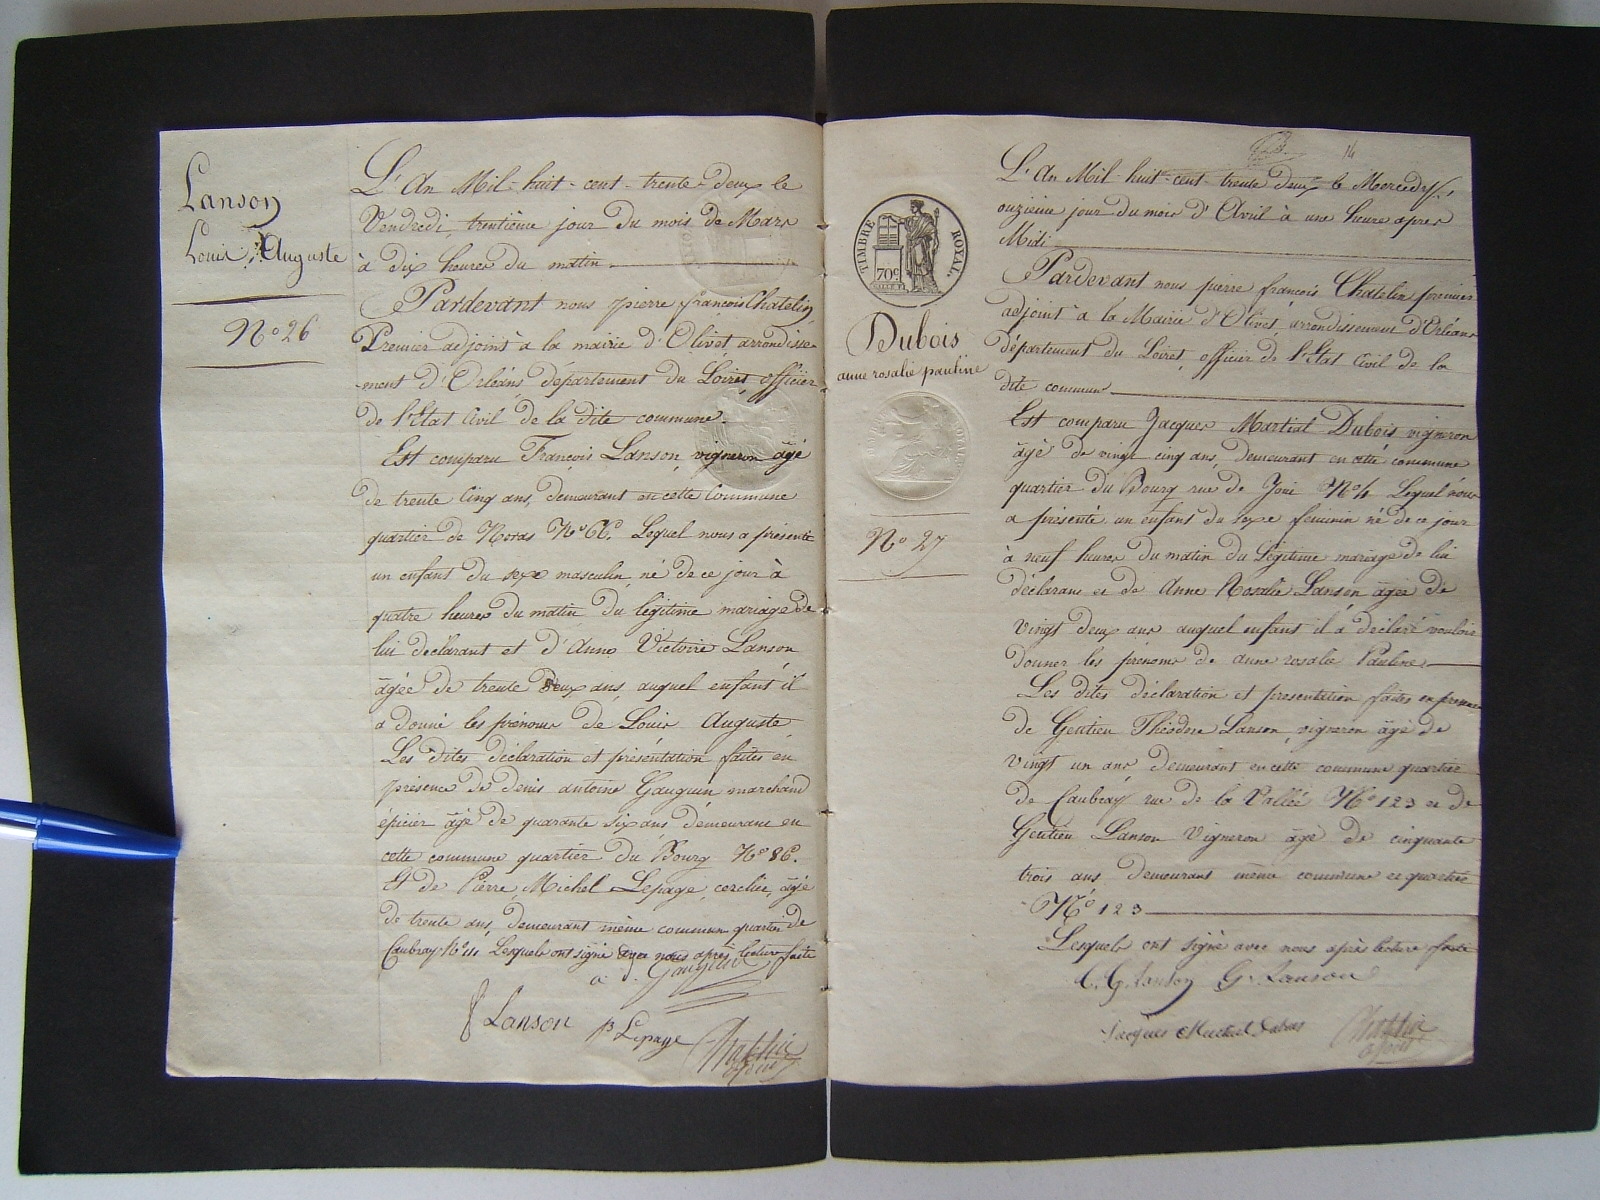 Lanson
Louis Auguste
N° 26
L'An Mil-huit-cent-trente-Deux le
Vendredi, trentième jour du mois de Mars
à dix heures du matin
Pardevant nous pierre françois Chatelin
Premier adjoint à la mairie d'Olivet arrondisse-
-ment d'Orléans département du Loiret officier
de l'Etat Civil de la dite commune.
Est comparu François Lanson vigneron âgé
de trente Cinq ans, demeurant en cette Commune
quartier de N° Lequel nous a présenté
un enfant du sexe masculin né de ce jour à
quatre heures du matin du légitime mariage de
lui déclarant et d'Anne Victoire Lanson
âgée de trente Deux ans, auquel enfant il
a donné les prénoms de Louis Auguste
Les dites déclaration et présentation faites en
présence de denis antoine Gauguin marchand
épicier âgé de quarante six ans demeurant en
cette commune quartier du Bourg N° 86.
Et de Pierre Michel Lepage, cerclier, âgé
de trente ans, demeurant même commune quartier de
Caubray N° 111 Lesquels ont signé avec nous après lecture faite
Lanson
p Lepage
TIMBRE ROYAL
70c
Dubois
anne rosalie pauline
N° 27
14
L'An Mil huit-cent-trente deux le Mercredy,
onzième jour du mois d'Avril à une heure après
Midi
Pardevant nous pierre françois Chatelin premier
adjoint à la Mairie d'Olivet, arrondissement d'Orléans
département du Loiret, officier de l'Etat Civil de la
dite commune
Est comparu Jacques Martial Dubois vigneron
âgé de vingt cinq ans, demeurant en cette commune
quartier du Bourg rue de N° Lequel nous
a présenté un enfant du sexe feminin né de ce jour
à neuf heures du matin du Légitime mariage de lui
déclarant et de Anne Rosalie Lanson âgée de
vingt deux ans auquel enfant il a déclaré vouloir
donner les prénoms de anne rosalie Pauline
Les dites déclaration et presentation faites en présence
de Gentien Théodore Lanson, vigneron âgé de
vingt un ans demeurant en cette commune quartier
de Caubray rue de la Vallée N° 123 et de
Gentien Lanson Vigneron âgé de cinquante
trois ans demeurant même commune et quartier
N° 123
Lesquels ont signé avec nous après lecture faite
G. Lanson
Jacques